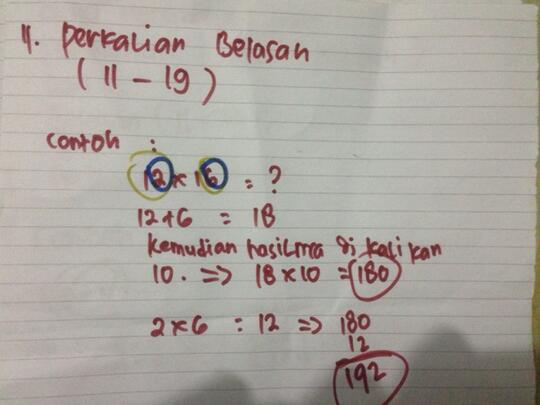 4. Perkalian Belasan
(11 - 19)
contoh :
12 x 16 = ?
12 + 6 = 18
kemudian hasilnya di kalikan
10. => 18 x 10 = 180
2 x 6 = 12 => 180
12
192